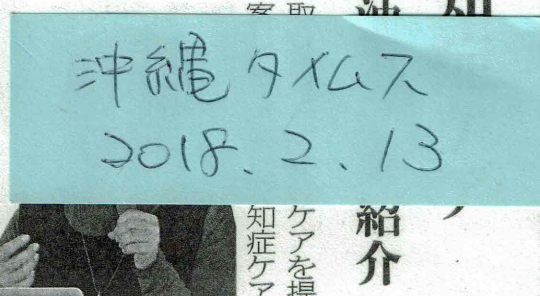 沖縄タイムス
2018.2.13
紹介
ケアを提
知症ケア